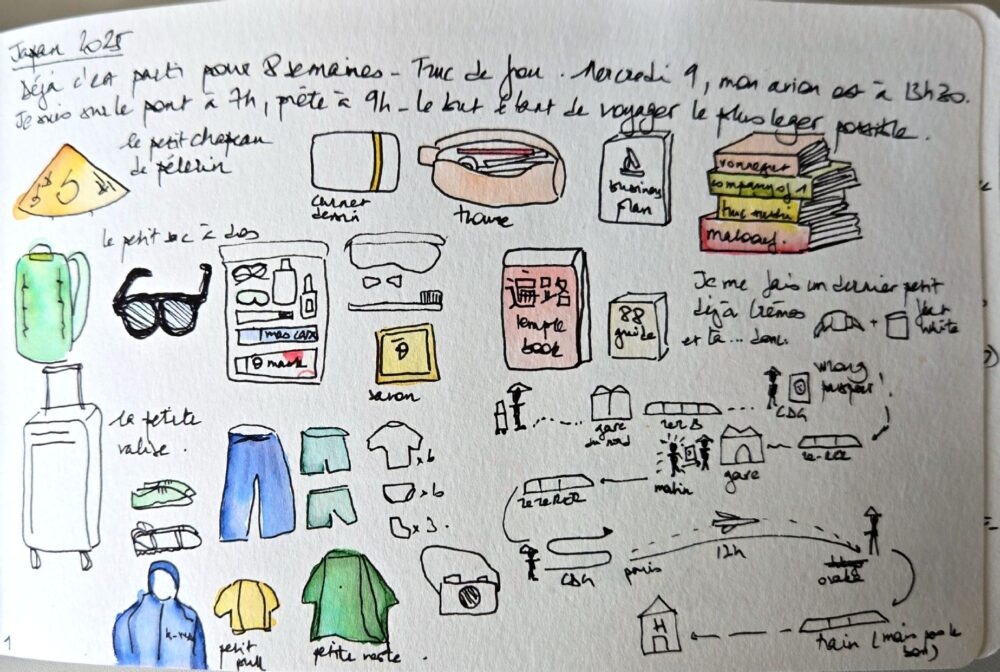 Japan 2025
Déjà c'est parti pour 8 semaines - Truc de fou. Mercredi 9, mon avion est à 13h30.
Je suis sur le pont à 7h, prête à 9h - le but étant de voyager le plus léger possible.
le petit chapeau
de pélerin
carnet
dessin
trousse
business
plan
vonnegut
company of 1
maloouf.
le petit sac à dos
mes cam
mask
savon
遍路
temple
book
88
guide
Je me fais un dernier petit
déj à
et là ... donc
+
la petite
valise.
x6
x6
x3.
gare
du nord
rer B
CDG
wrong
passport!
re-RER
gare
matin
re re RER
CDG
paris
12h
osaka
train (mais pas le
bon)
H
k-way
petit
pull
petite veste.
1